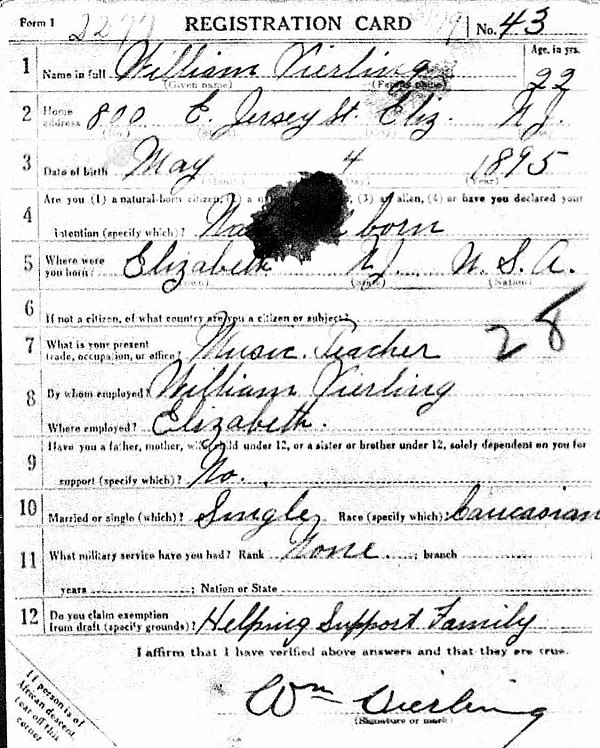 Form 1 2277 REGISTRATION CARD 79 No. 43
1 Name in full William Vierling Age, in yrs. 22
(Given name) (Family name)
2 Home address 800 E. Jersey St. Eliz. N.J.
3 Date of birth May 4 1895
(Month) (Day) (Year)
4 Are you (1) a natural-born citizen, (2) a (3) an alien, (4) or have you declared your
intention (specify which)? born
5 Where were you born? Elizabeth N.J. U.S.A.
(Town) (State) (Nation)
6 If not a citizen, of what country are you a citizen or subject?
7 What is your present trade, occupation, or office? Music Teacher 28
8 By whom employed? William Vierling
Where employed? Elizabeth.
9 Have you a father, mother, wife, child under 12, or a sister or brother under 12, solely dependent on you for
support (specify which)? No.
10 Married or single (which)? Single Race (specify which)? Caucasian
11 What military service have you had? Rank None ; branch
years ; Nation or State
12 Do you claim exemption from draft (specify grounds)? Helping Support Family
I affirm that I have verified above answers and that they are true.
Wm Vierling
(Signature or mark)
If person is of
African descent,
tear off this
corner